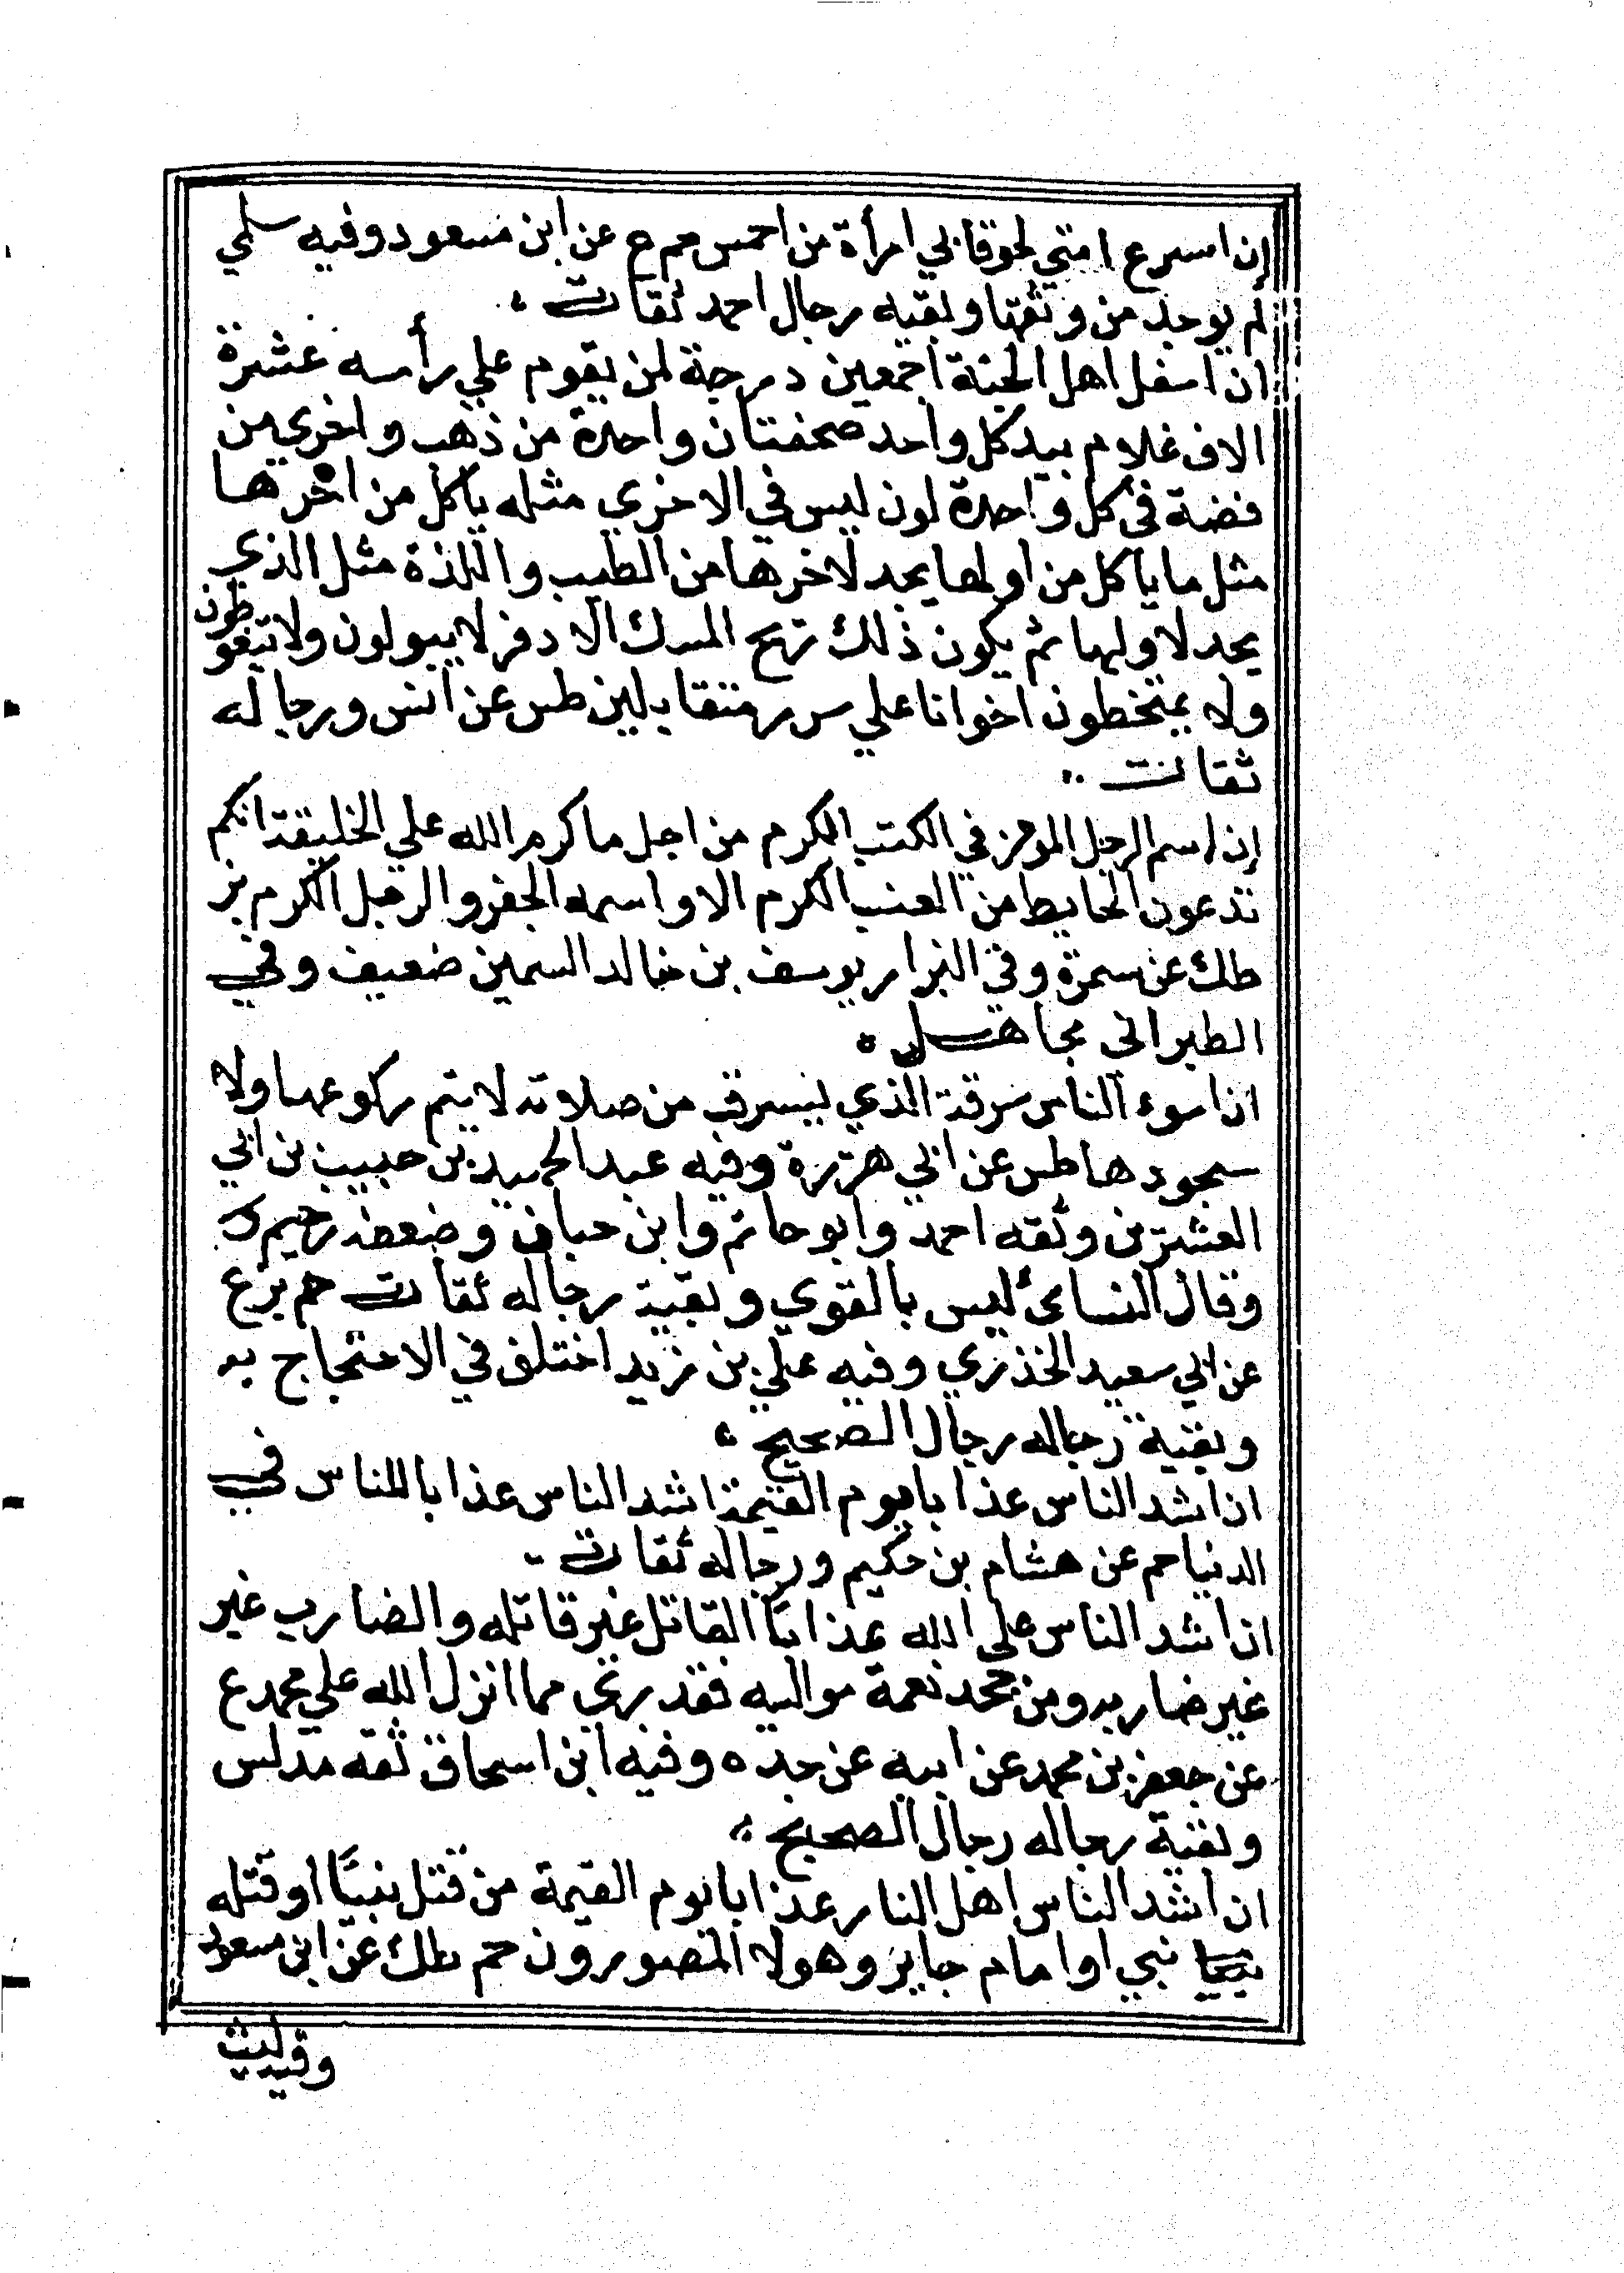 إن اسرع امتي لحوقا بي امرأة من احمس حم ع عن ابن مسعود وفيه سلمي
لم يوجد من وثقها وبقيه رجال احمد ثقات
ان اسفل اهل الجنة اجمعين درجة لمن يقوم علي رأسه عشرة
الاف غلام بيد كل واحد صحفتان واحدة من ذهب واخري من
فضة في كل واحدة لون ليس في الاخري مثله يأكل من اخرها
مثل ما يأكل من اولها يجد لاخرها من الطيب واللذة مثل الذي
يجد لاولها ثم يكون ذلك ريح المسك الادفر لا يبولون ولا يتغوطون
ولا يمتخطون اخوانا علي سرر متقابلين طس عن انس ورجاله
ثقات
إن اسم الرجل المومن في الكتب الكرم من اجل ما كرم الله علي الخليقة انكم
تدعون الحايط من العنب الكرم الا واسمه الجفر والرجل الكرم بز
طك عن سمرة وفي البزار يوسف بن خالد السمين ضعيف وفي
الطبراني مجاهيل
ان اسوء الناس سرقة الذي يسرق من صلاته لا يتم ركوعها ولا
سجودها طس عن ابي هريرة وفيه عبد الحميد بن حبيب بن ابي
العشرين وثقه احمد وابو حاتم وابن حبان وضعفه دحيم
وقال النسائ ليس بالقوي وبقية رجاله ثقات حم بز ع
عن ابي سعيد الخذري وفيه علي بن زيد اختلف في الاحتجاج به
وبقية رجاله رجال الصحيح
ان اشد الناس عذابا يوم القيمة اشد الناس عذابا للناس في
الدنيا حم عن هشام بن حكيم ورجاله ثقات
ان اشد الناس علي الله عذابا القاتل غير قاتله والضارب غير
غير ضاربه ومن جحد نعمة مواليه فقد بري مما انزل الله علي محمد ع
عن جعفر بن محمد عن ابيه عن جده وفيه ابن اسحاق ثقه مدلس
وبقية رجاله رجال الصحيح
ان اشد الناس اهل النار عذابا يوم القيمة من قتل نبيا او قتله
نبي او امام جاير وهولا المصورون حم طك عن ابن مسعود
وفيه ليث